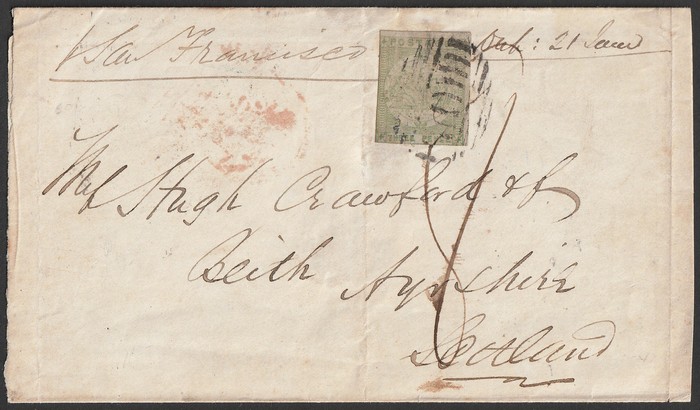 San Francisco
21
POST
Hugh Crawford &
Beith
Ayrshire
Scotland